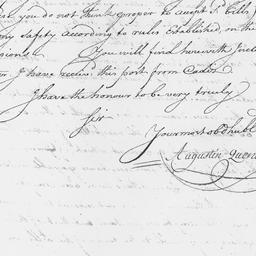 you do not think proper to accept
my safety according to rules Established, on the
sions. You will find herewith Incl
I have receiv'd this post from Cadiz
I have the honour to be very truely
Sir
Your most obd hubl
Augustin Quera